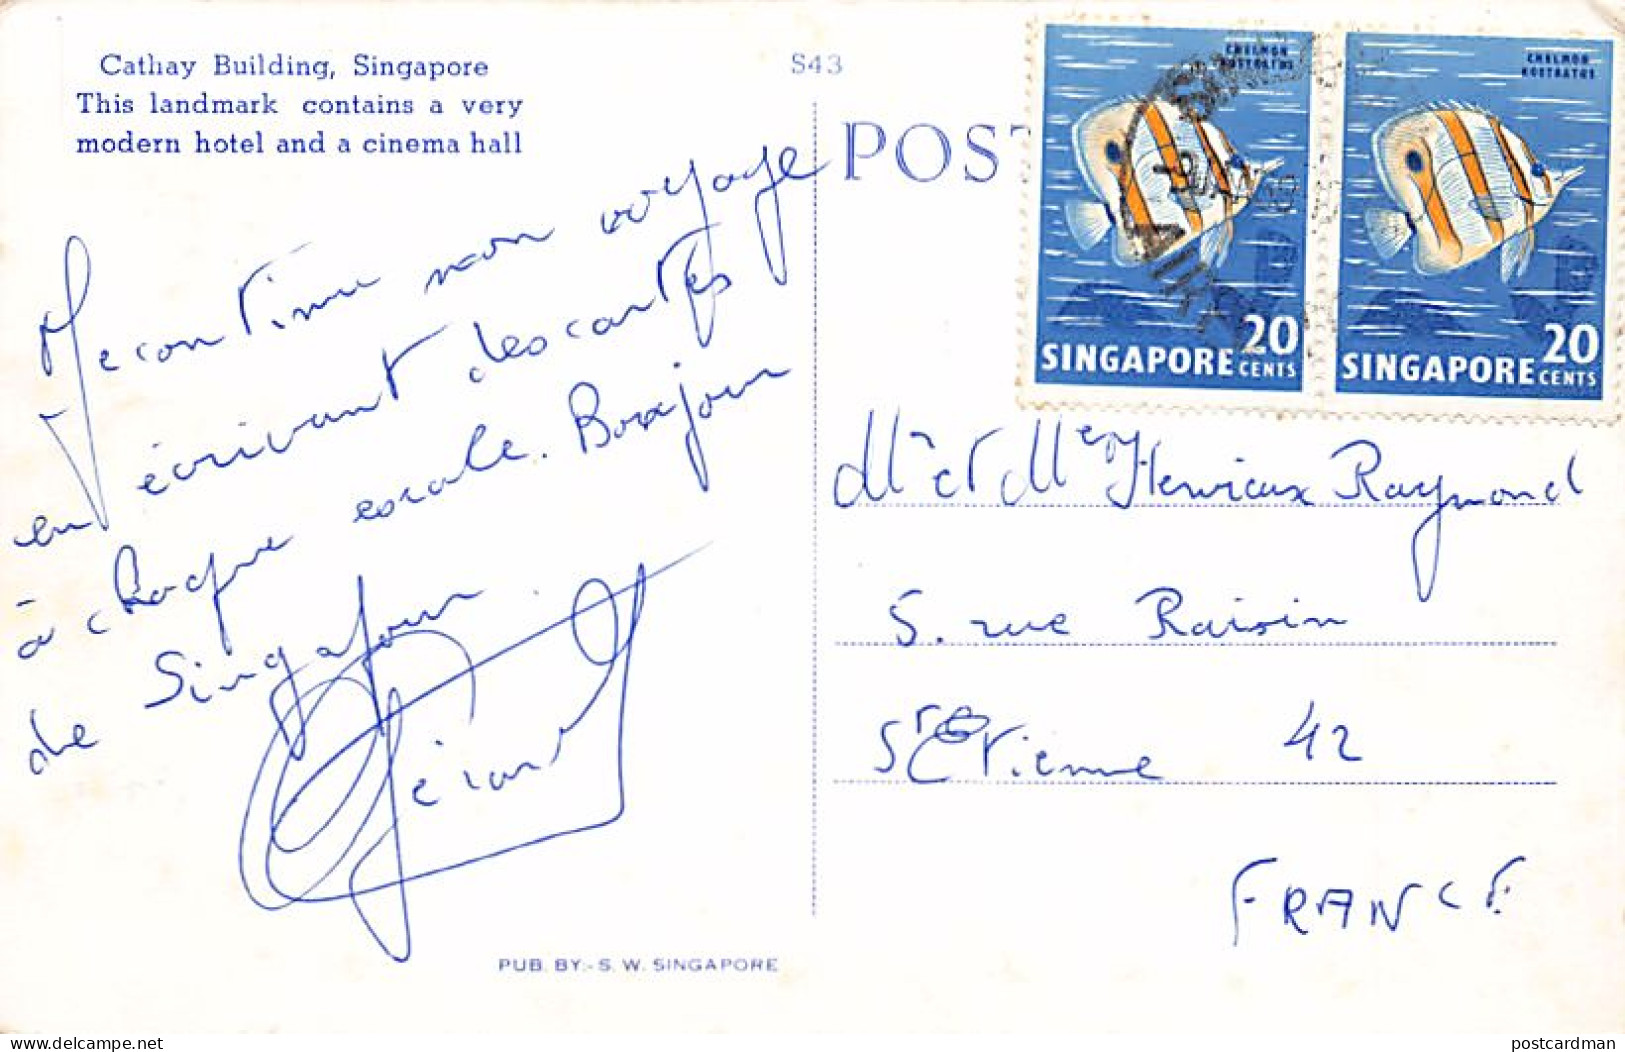 Cathay Building, Singapore
This landmark contains a very
modern hotel and a cinema hall
S43
POST
CHELMON
ROSTRATUS
20
SINGAPORE CENTS
CHELMON
ROSTRATUS
20
SINGAPORE CENTS
Je continue mon voyage
en écrivant des cartes
à chaque escale. Bonjour
de Singapour.
Gérard
Mr et Mme Raymond
5. rue Raisin
St Etienne 42
FRANCE
PUB. BY:- S. W. SINGAPORE
delcampe.net
postcardman